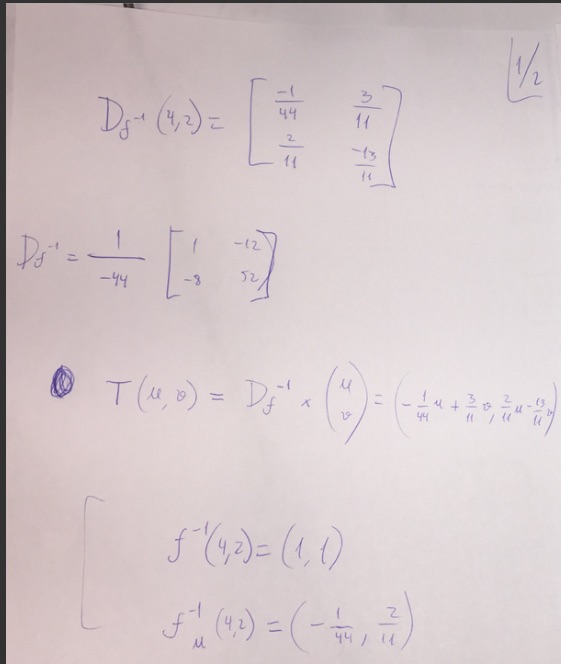 1/2
D_{f^{-1}}(4,2) = [ -1/44 3/11 ; 2/11 -13/11 ]
D_{f^{-1}} = 1/-44 [ 1 -12 ; -8 52 ]
T(u,v) = D_f^{-1} × (u ; v) = (-1/44 u + 3/11 v, 2/11 u - 13/11 v)
f^{-1}(4,2) = (1,1)
f^{-1}_u (4,2) = (-1/44, 2/11)